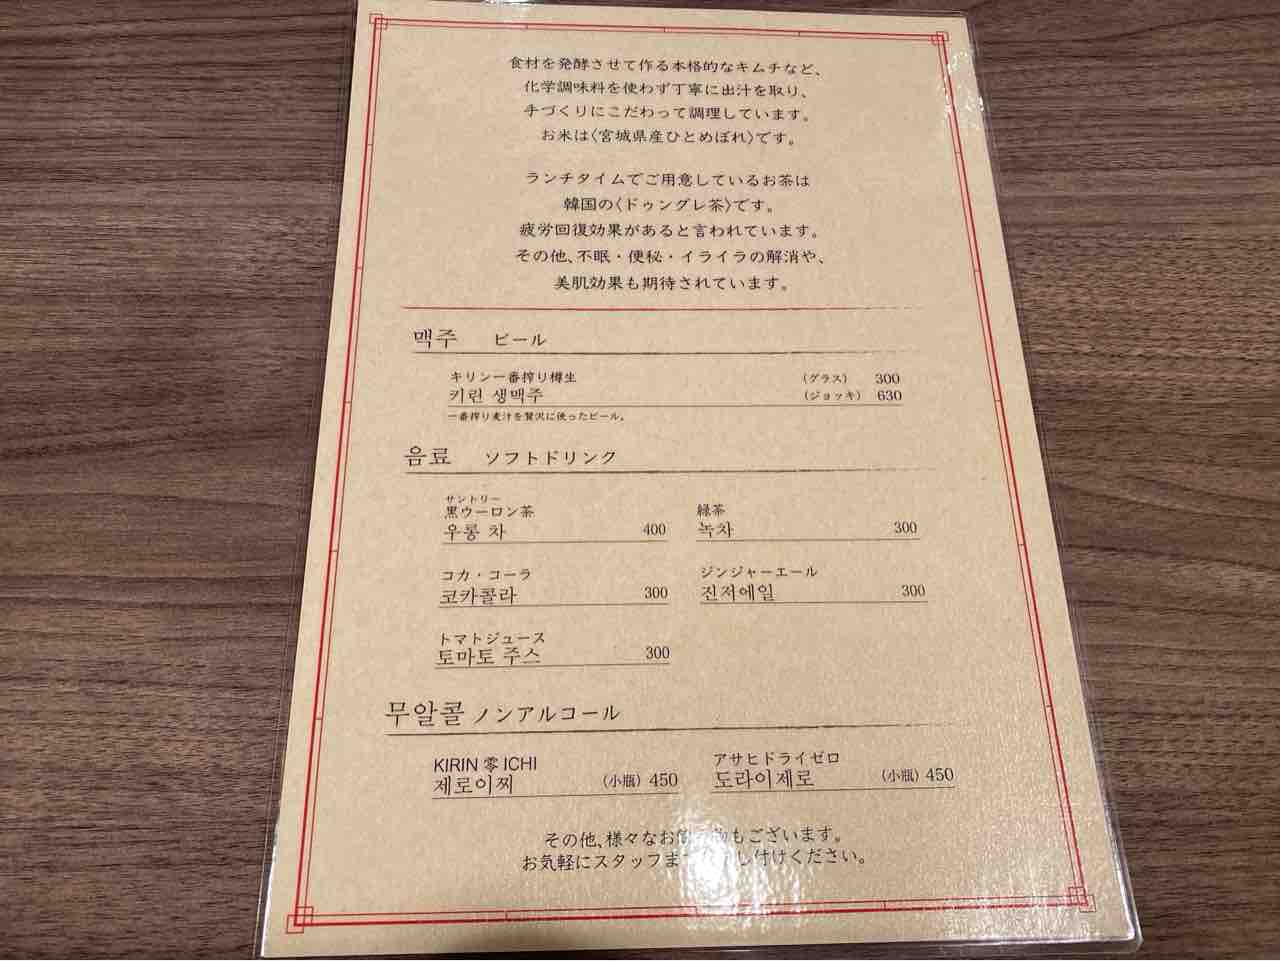 食材を発酵させて作る本格的なキムチなど、
化学調味料を使わず丁寧に出汁を取り、
手づくりにこだわって調理しています。
お米は〈宮城県産ひとめぼれ〉です。
ランチタイムでご用意しているお茶は
韓国の〈ドゥングレ茶〉です。
疲労回復効果があると言われています。
その他、不眠・便秘・イライラの解消や、
美肌効果も期待されています。
맥주 ビール
キリン一番搾り樽生 (グラス) 300
키린 생맥주 (ジョッキ) 630
一番搾り麦汁を贅沢に使ったビール。
음료 ソフトドリンク
サントリー
黒ウーロン茶
우롱 차 400
緑茶
녹차 300
コカ・コーラ
코카콜라 300
ジンジャーエール
진저에일 300
トマトジュース
토마토 주스 300
무알콜 ノンアルコール
KIRIN 零 ICHI
제로이찌 (小瓶) 450
アサヒドライゼロ
도라이제로 (小瓶) 450
その他、様々なお もございます。
お気軽にスタッフま し付けください。